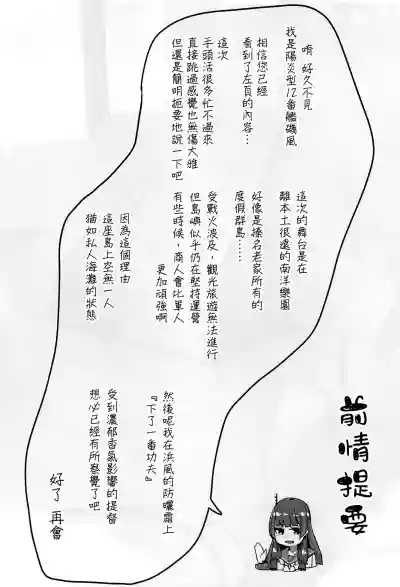 前情提要
唷 好久不見
我是陽炎型12番艦磯風
相信您已經
看到了左頁的內容…
這次
手頭活很多忙不過來
直接跳過感覺也無傷大雅
但還是簡明扼要地說一下吧
這次的舞台是在
離本土很遠的南洋樂園
好像是榛名老家所有的
度假群島……
受戰火波及，觀光旅遊無法進行
但島嶼似乎仍在堅持運營
有些時候，商人會比軍人
更加頑強啊
因為這個理由
這座島上空無一人
猶如私人海灘的狀態
然後呢我在浜風的防曬霜上
『下了一番功夫』
受到濃郁香氣影響的提督
想必已經有所察覺了吧
好了 再會